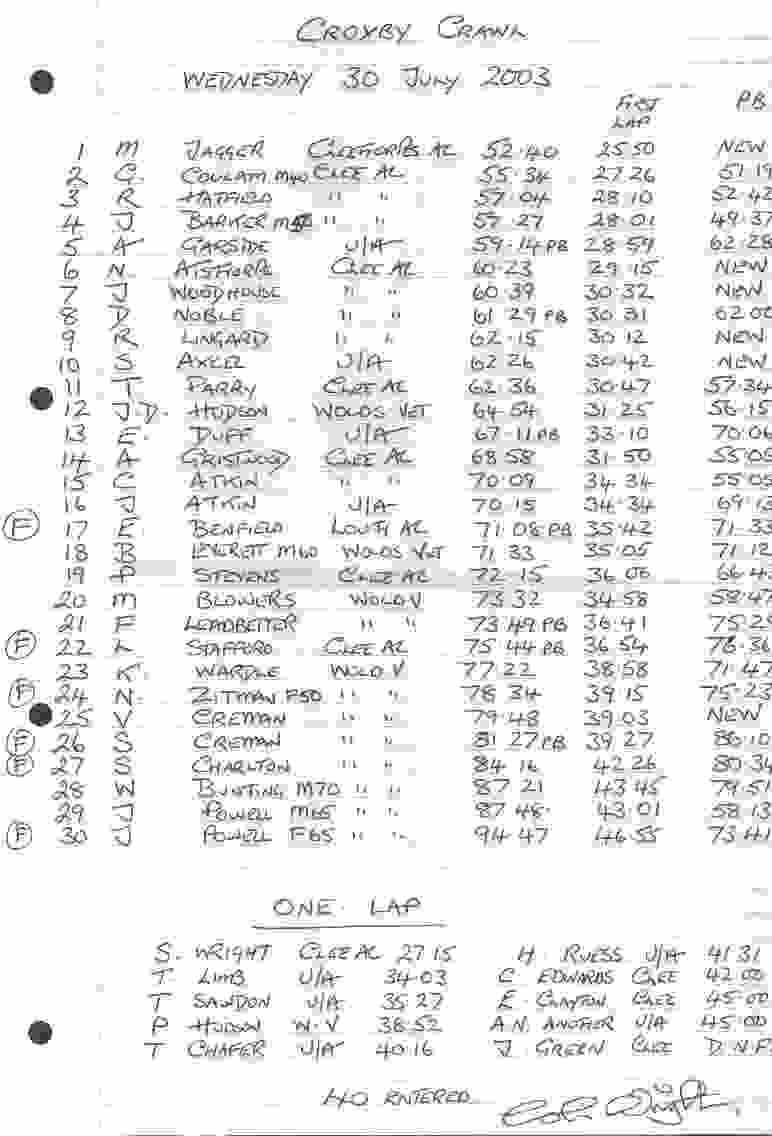 CROXBY CRAWL
WEDNESDAY 30 JULY 2003
FIRST LAP PB
1 M JAGGER CLEETHORPES AC 52·40 25 50 NEW
2 G. COULAM M40 CLEE AC 55·34 27·26 51·19
3 R HATFIELD " " 57·04 28·10 52·42
4 J BARKER " " 57·27 28·01 49·37
5 A GARSIDE U/A 59·14 PB 28·59 62·28
6 N. AISTHORPE CLEE AC 60·23 29·15 NEW
7 J WOODHOUSE " " 60·39 30·32 NEW
8 D NOBLE " " 61 29 PB 30·31 62·00
9 R LINGARD " " 62·15 30·12 NEW
10 S AXCELL U/A 62 26 30·42 NEW
11 T PARRY CLEE AC 62·36 30·47 57·34
12 J.D. HUDSON WOLDS VET 64·54 31·25 56·15
13 E. DUFF U/A 67·11 PB 33·10 70·06
14 A GRISTWOOD CLEE AC 68·58 31·50 55·05
15 C ATKIN " " 70·09 34·34 55·05
16 J ATKIN U/A 70·15 34·34 69·13
F 17 E. BENFIELD LOUTH AC 71·08 PB 35·42 71·33
18 B LEVERETT M60 WOLDS VET 71 33 35·05 71·12
19 P STEVENS CLEE AC 72·15 36 06 66·43
20 M BLOWERS WOLD V 73 32 34·58 58·47
21 F LEADBEITER " " 73·49 PB 36·41 75·25
F 22 L STAFFORD CLEE AC 75·44 PB 36·54 76·36
23 K. WARDLE WOLD V 77·22 38·58 71·47
F 24 N. ZITMAN F50 " " 78 34 39·15 75·23
25 V CREMAN " " 79·48 39·03 NEW
F 26 S CREMAN " " 81 27 PB 39·27 86·10
F 27 S CHARLTON " " 84 16 42·26 80·34
28 W BUNTING M70 " " 87 21 43·45 79·51
29 J POWELL M65 " " 87 48· 43·01 58·13
F 30 J POWELL F65 " " 94·47 46·55 73·41
ONE LAP
S. WRIGHT CLEE AC 27 15 H. RUESS U/A 41 31
T LIMB U/A 34·03 C EDWARDS CLEE 42 00
T SAWDON U/A 35·27 E CLAYTON CLEE 45·00
P HUDSON W·V 38·52 A.N. ANOTHER U/A 45·00
T CHAFER U/A 40·16 J GREEN CLEE D.N.F.
40 ENTERED